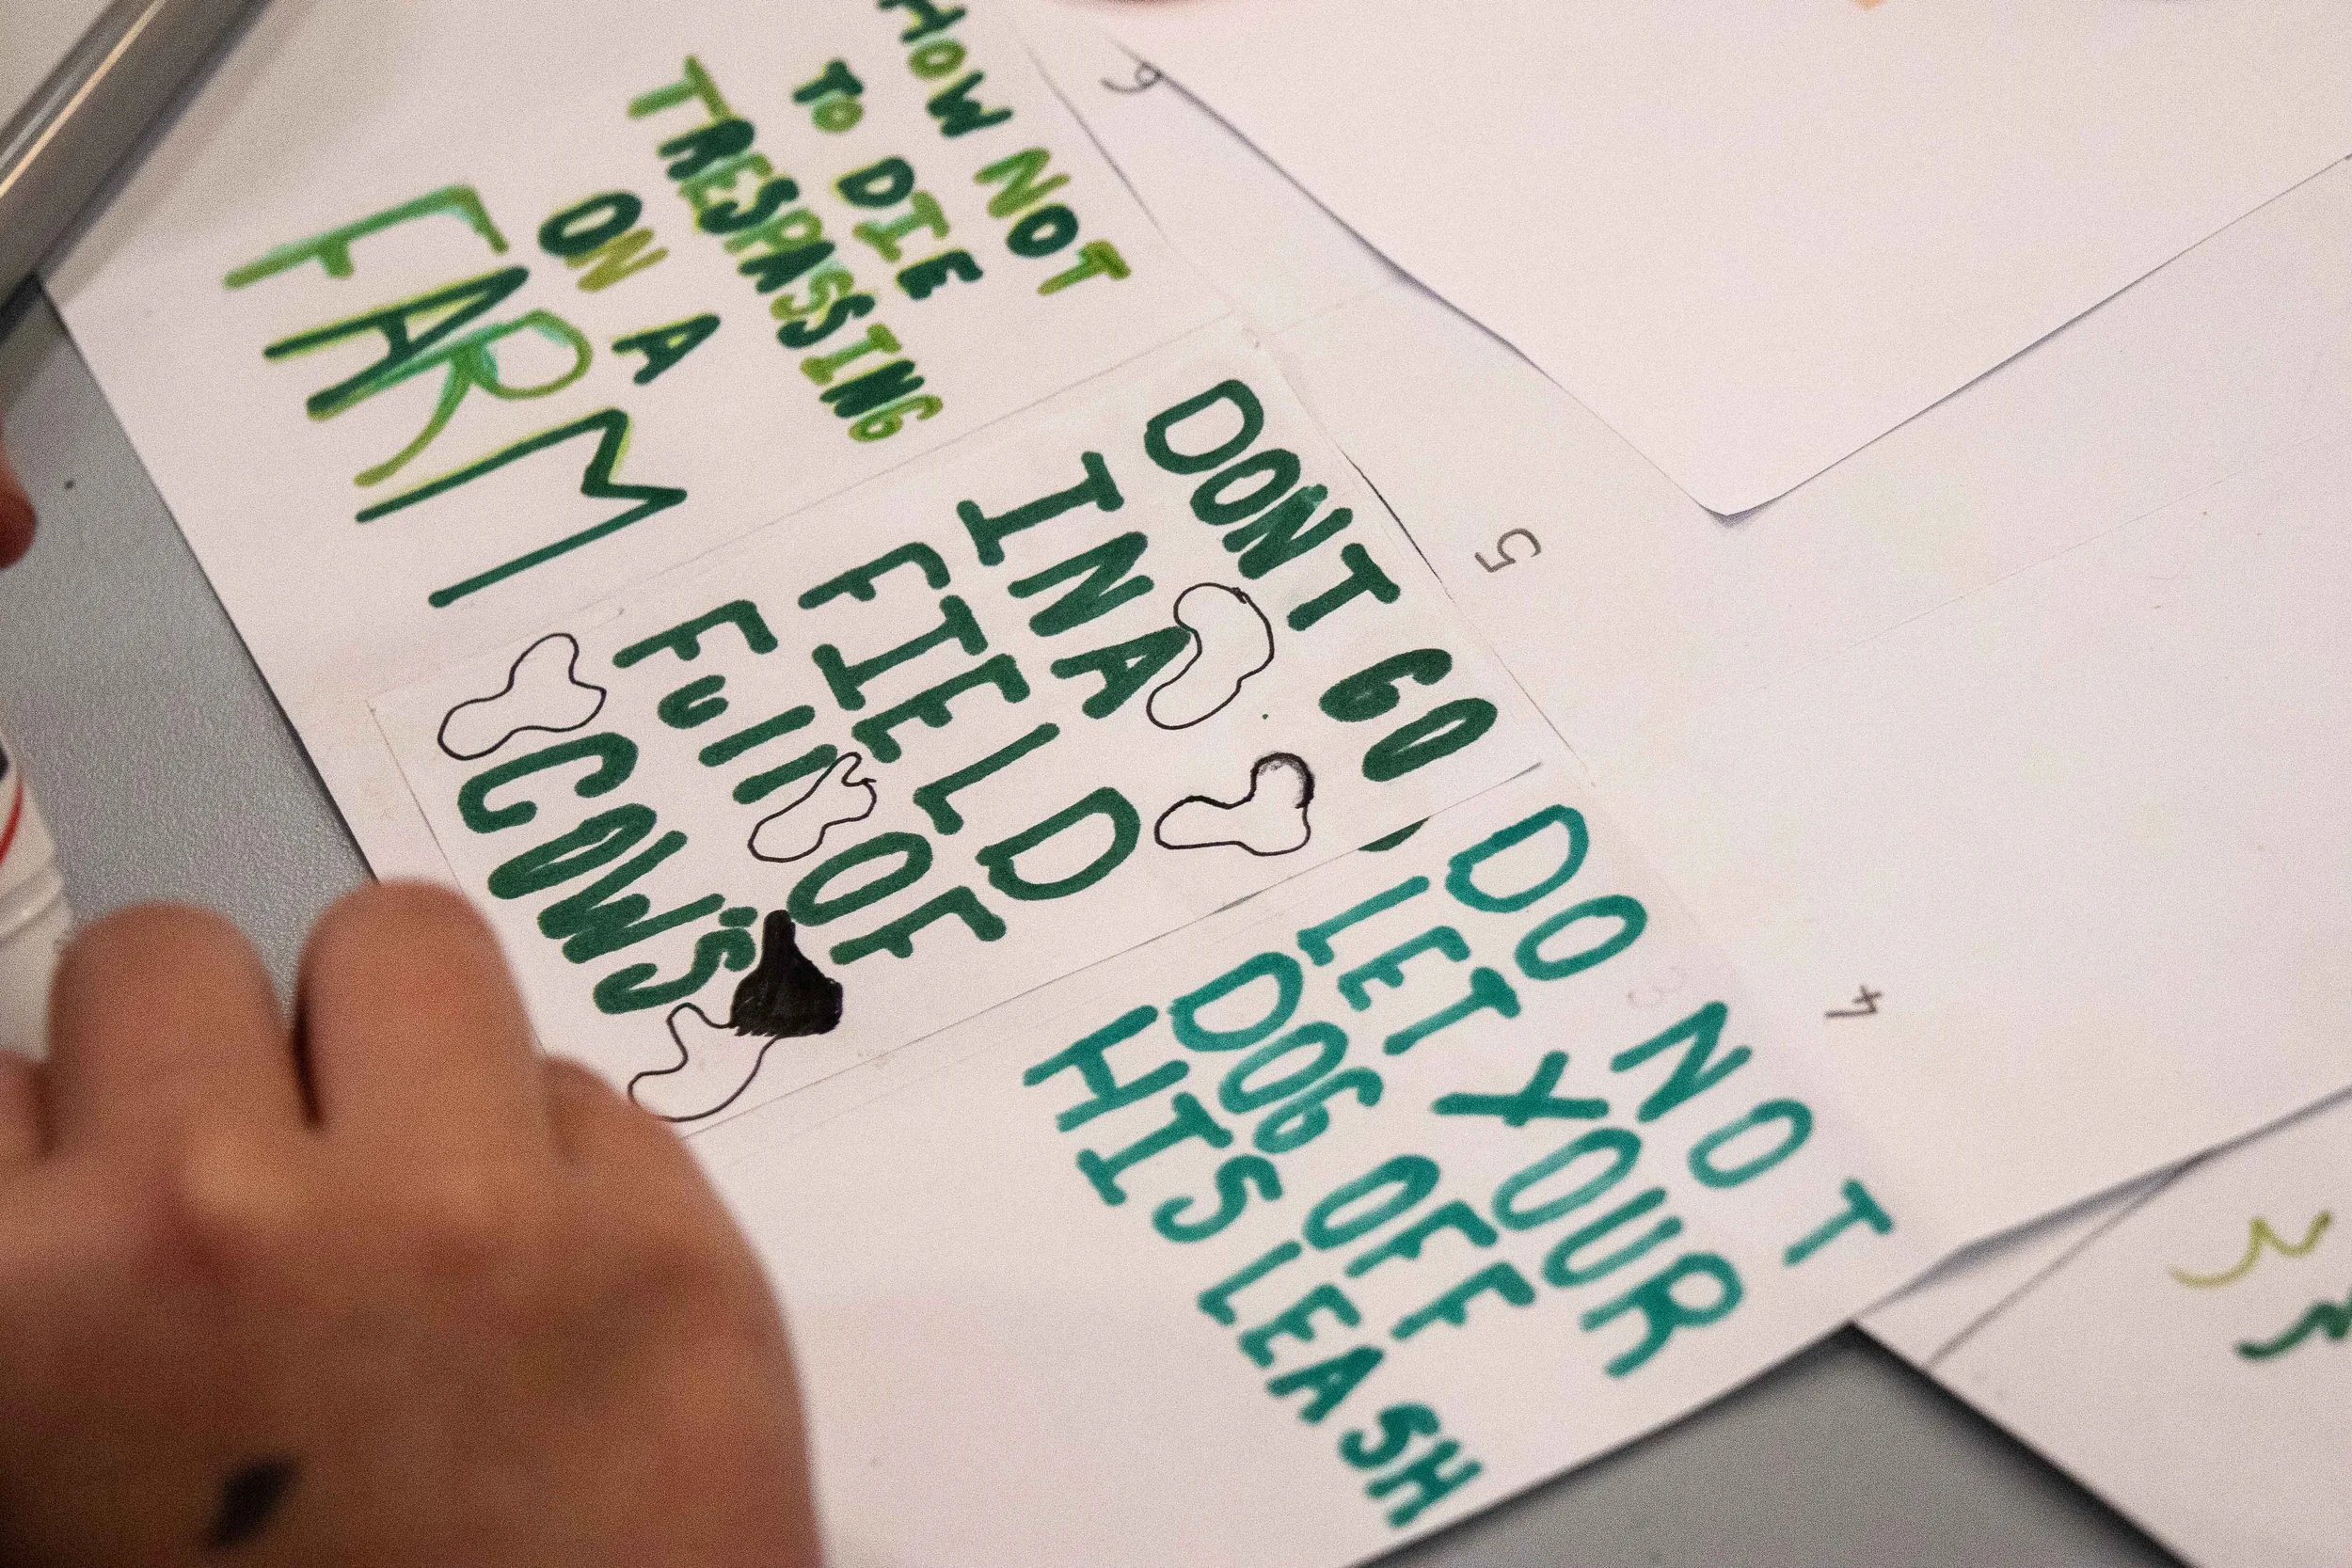 HOW NOT
TO DIE
TRESPASSING
ON A
FARM
6
DONT GO
IN A
FIELD
FUll OF
COW'S
5
DO NOT
LET YOUR
DOG OFF
HIS LEASH
4